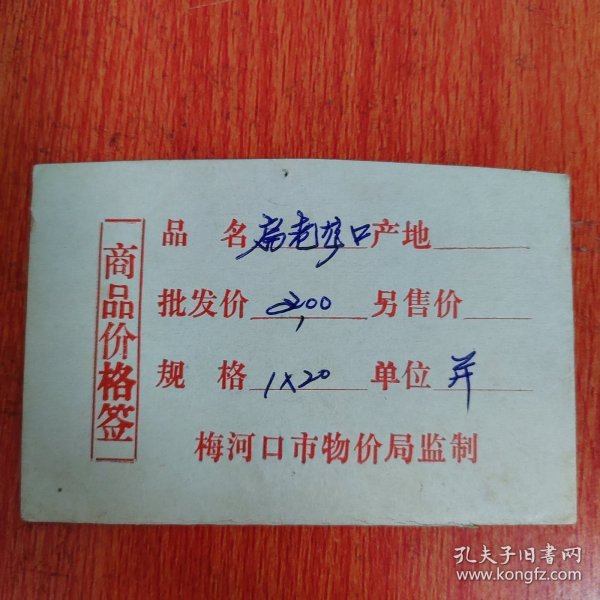 商品价格签
品名 扁老窖口 产地
批发价 2,00 另售价
规格 1×20 单位 并
梅河口市物价局监制
孔夫子旧书网
www.kongfz.com